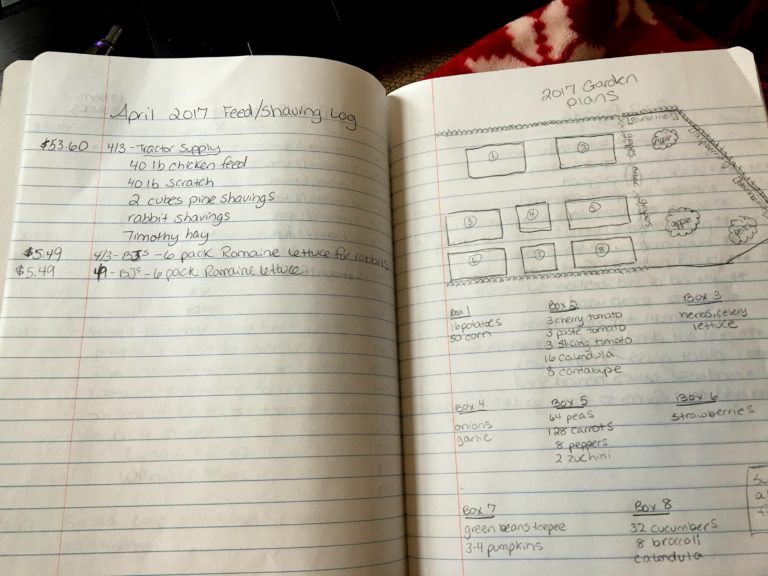 April 2017 Feed/Shaving Log
$53.60 4/3 - Tractor Supply
40 lb chicken feed
40 lb scratch
2 cubes pine shavings
rabbit shavings
Timothy hay
$5.49 4/3 - BJs - 6 pack Romaine lettuce for rabbits
$5.49 4/9 - BJs - 6 pack Romaine lettuce
2017 Garden
Plans
1
2
3
4
5
6
7
8
grapes
grapes
apple
Box 1
16 potatoes
50 corn
Box 2
3 cherry tomato
3 paste tomato
3 slicing tomato
16 calendula
8 cantalope
Box 3
herbs, celery
lettuce
Box 4
onions
garlic
Box 5
64 peas
128 carrots
8 peppers
2 zuchini
Box 6
strawberries
Box 7
green beans teepee
3-4 pumpkins
Box 8
32 cucumbers
8 broccoli
calendula